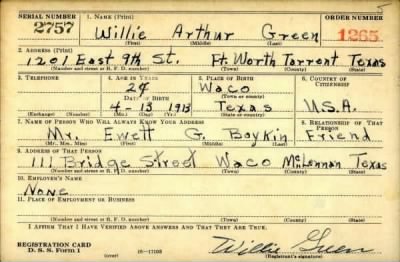 5
SERIAL NUMBER 1. NAME (Print) ORDER NUMBER
2757 Willie Arthur Green 1265
(First) (Middle) (Last)
2. ADDRESS (Print)
1201 East 9th St. Ft. Worth Tarrent Texas
(Number and street or R. F. D. number) (Town) (County) (State)
3. TELEPHONE 4. AGE IN YEARS 5. PLACE OF BIRTH 6. COUNTRY OF CITIZENSHIP
24 Waco
DATE OF BIRTH (Town or county)
4-13 1913 Texas U.S.A.
(Exchange) (Number) (Mo.) (Day) (Yr.) (State or country)
7. NAME OF PERSON WHO WILL ALWAYS KNOW YOUR ADDRESS 8. RELATIONSHIP OF THAT PERSON
Mr. Ewett G. Boykin Friend
(Mr., Mrs., Miss) (First) (Middle) (Last)
9. ADDRESS OF THAT PERSON
111 Bridge Street Waco McLennan Texas
(Number and street or R. F. D. number) (Town) (County) (State)
10. EMPLOYER'S NAME
None
11. PLACE OF EMPLOYMENT OR BUSINESS
(Number and street or R. F. D. number) (Town) (County) (State)
I AFFIRM THAT I HAVE VERIFIED ABOVE ANSWERS AND THAT THEY ARE TRUE.
REGISTRATION CARD
D. S. S. Form 1 16-17105 Willie Green
(Registrant's signature)